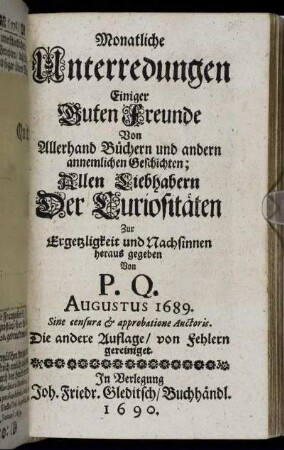 Monatliche
Unterredungen
Einiger
Guten Freunde
Von
Allerhand Büchern und andern
annemlichen Geschichten;
Allen Liebhabern
Der Curiositäten
Zur
Ergetzligkeit und Nachsinnen
heraus gegeben
Von
P. Q.
AUGUSTUS 1689.
Sine censura & approbatione Auctoris.
Die andere Auflage/ von Fehlern
gereiniget.
In Verlegung
Joh. Friedr. Gleditsch/ Buchhändl.
1690.